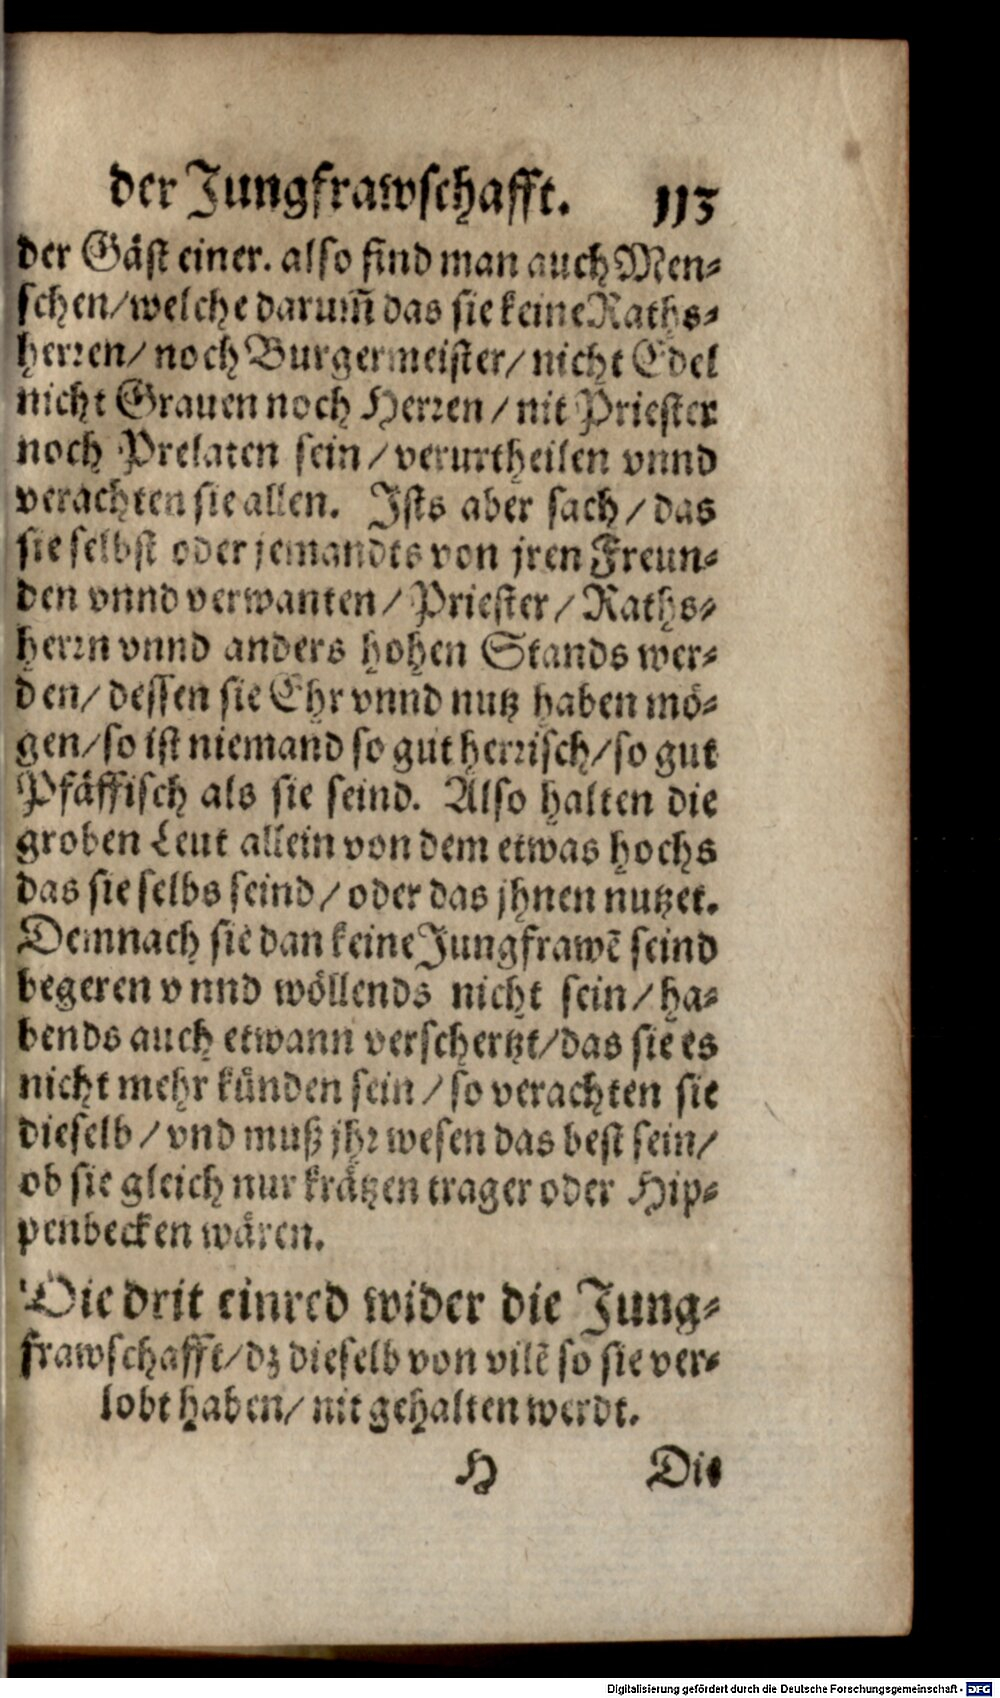 der Jungfrawschafft. 113
der Gäst einer. also find man auch Men-
schen/welche darum̃ das sie keine Raths-
herren/ noch Burgermeister/ nicht Edel
nicht Grauen noch Herren / nit Priester
noch Prelaten sein / verurtheilen vnnd
verachten sie allen. Ists aber sach / das
sie selbst oder jemandts von jren Freun-
den vnnd verwanten/ Priester/ Raths-
herrn vnnd anders hohen Stands wer-
den/ dessen sie Ehr vnnd nutz haben mö-
gen/so ist niemand so gut herrisch/so gut
Pfäffisch als sie seind. Also halten die
groben Leut allein von dem etwas hochs
das sie selbs seind / oder das jhnen nutzet.
Demnach sie dan keine Jungfrawẽ seind
begeren vnnd wöllends nicht sein / ha-
bends auch etwann verschertzt/das sie es
nicht mehr künden sein / so verachten sie
dieselb / vnd muß jhr wesen das best sein/
ob sie gleich nur krätzen trager oder Hip-
penbecken wären.
Die drit einred wider die Jung-
frawschafft/dz dieselb von vilẽ so sie ver-
lobt haben/ nit gehalten werdt.
H Die
Digitalisierung gefördert durch die Deutsche Forschungsgemeinschaft - DFG